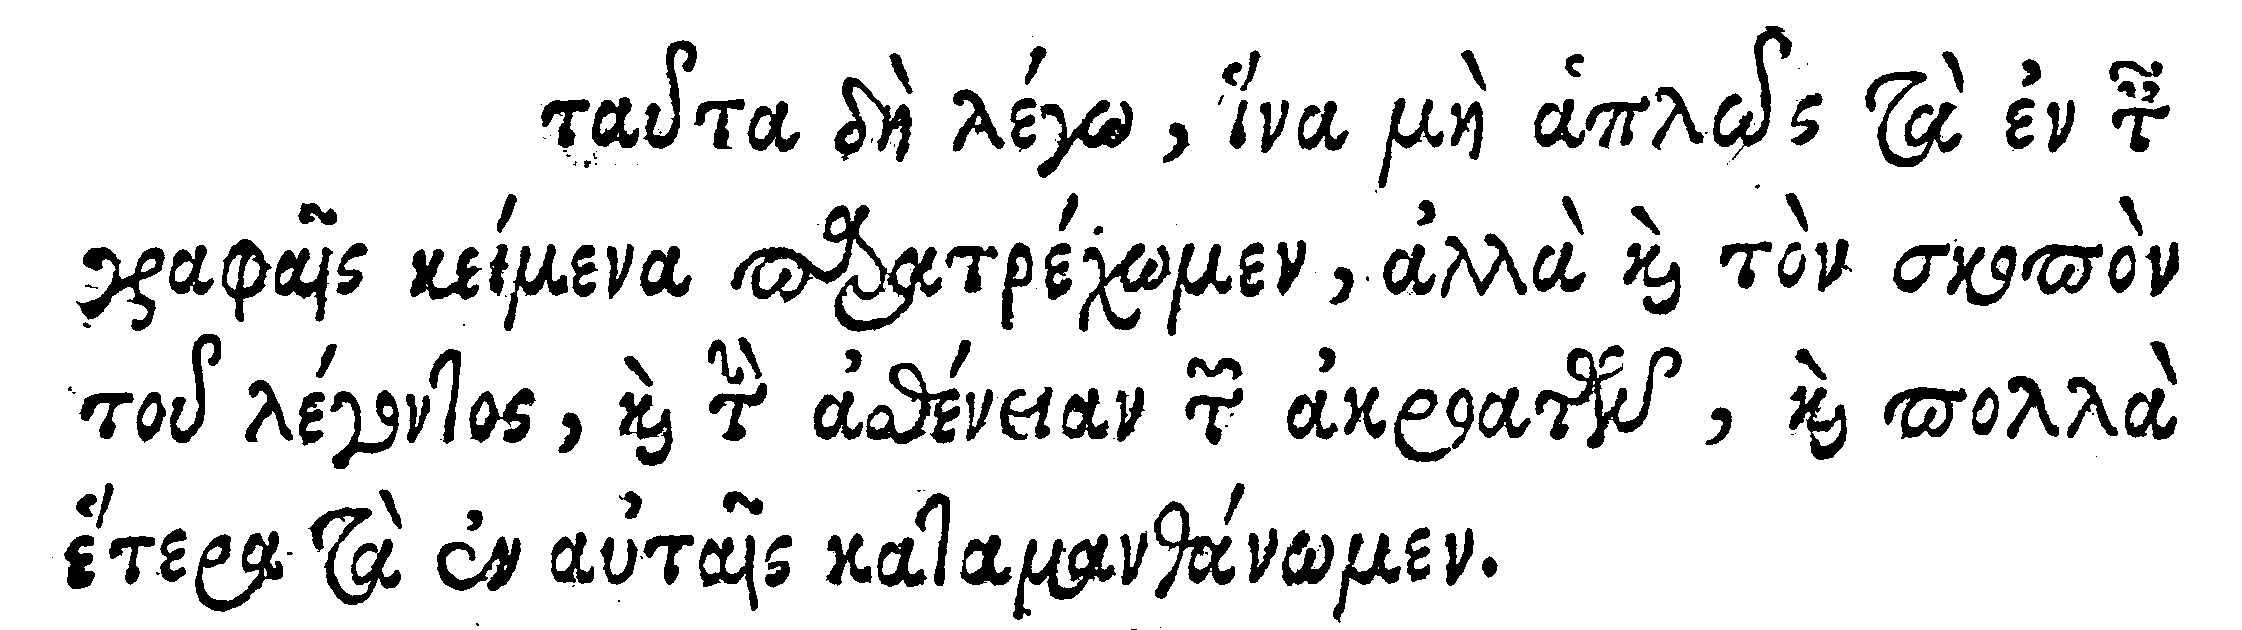 ταῦτα δὴ λέγω, ἵνα μὴ ἁπλῶς τὰ ἐν ταῖς
γραφαῖς κείμενα παρατρέχωμεν, ἀλλὰ καὶ τὸν σκοπὸν
τοῦ λέγοντος, καὶ τὴν ἀσθένειαν τῶν ἀκροατῶν, καὶ πολλὰ
ἕτερα τὰ ἐν αὐταῖς καταμανθάνωμεν.